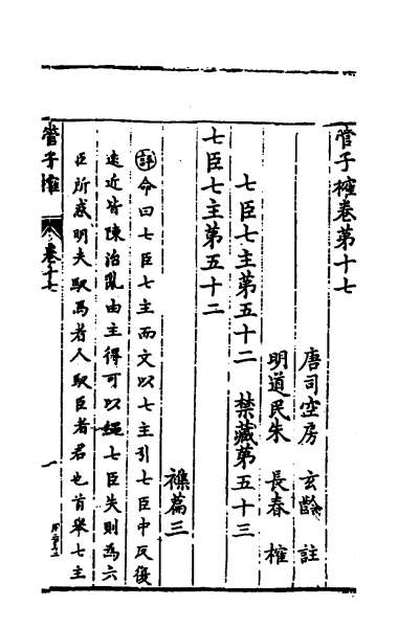 管子榷卷第十七
唐司空房 玄齡 註
明道民朱 長春 榷
七臣七主第五十二 禁藏第五十三
七臣七主第五十二
襍篇三
評 今曰七臣七主而文以七主引七臣中反復
遠近皆陳治亂由主得可以繩七臣失則為六
臣所惑明夫馭馬者人馭臣者君也首舉七主
管子榷
卷十七
一